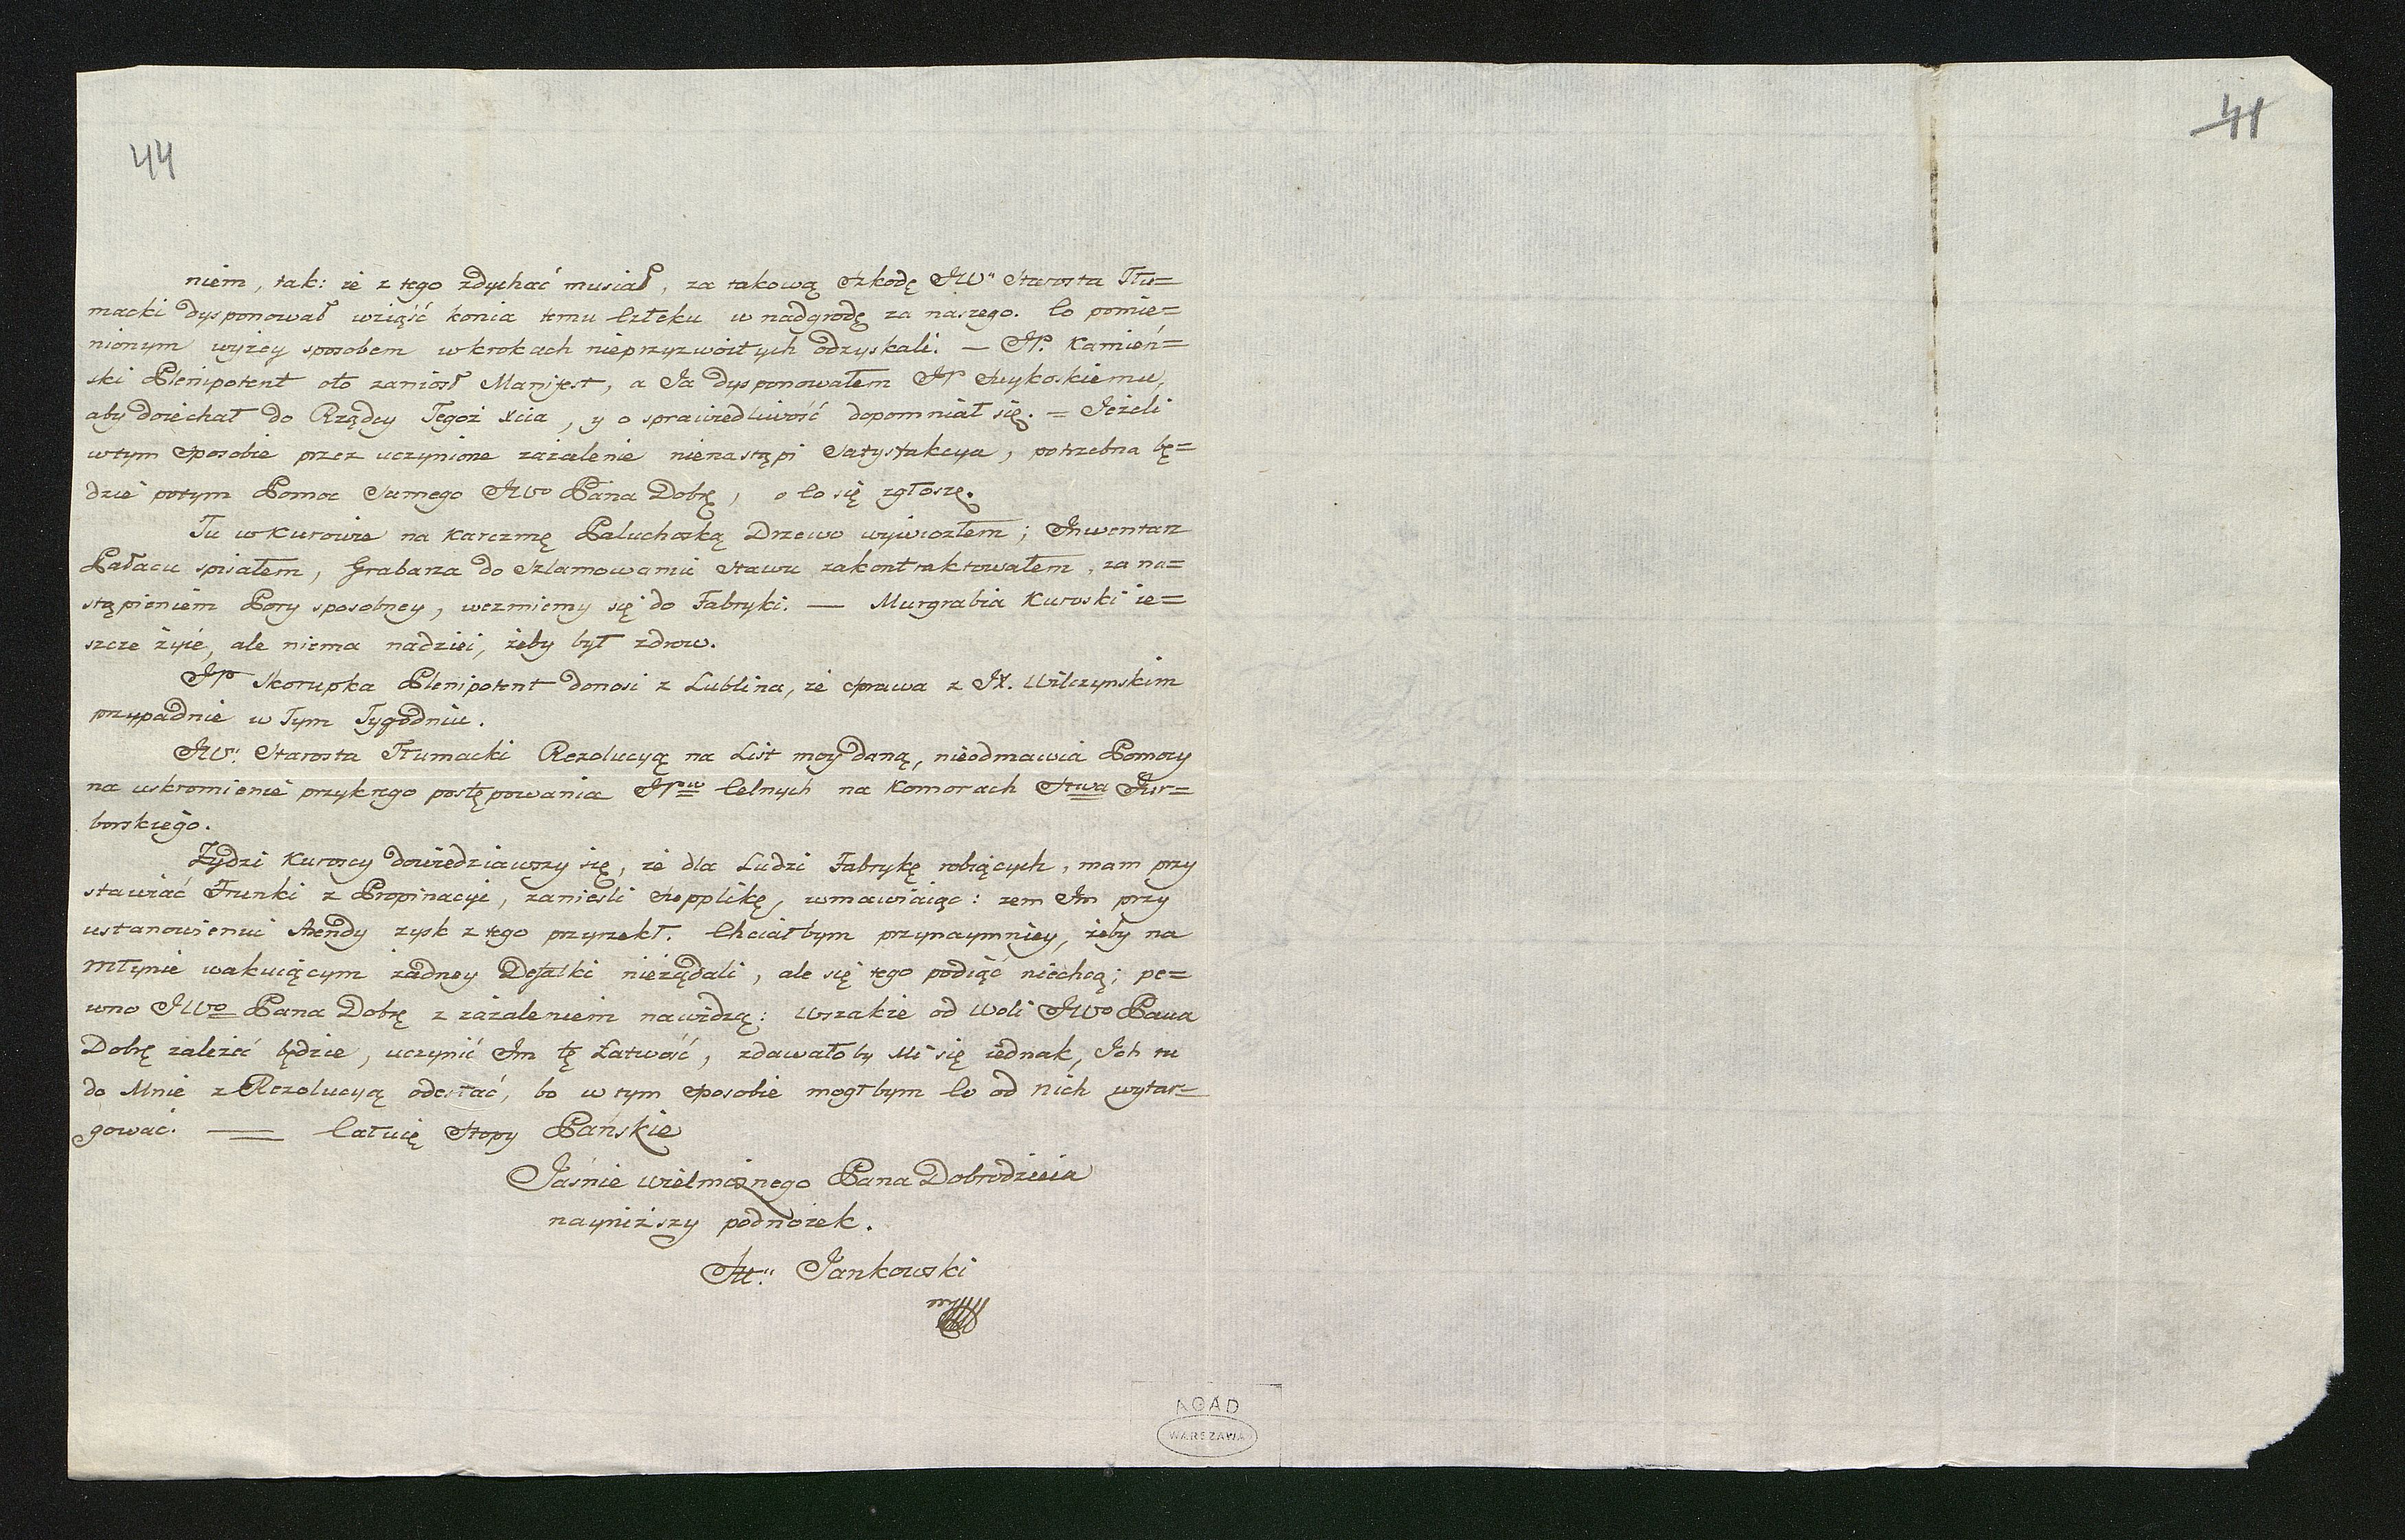 44
41
niem, tak: że z tego zdychać musiał, za takową szkodę JW Starosta Tłu=
macki dysponował wziąść konia temu Człeku w nadgrodę za naszego. Co pomie=
nionym wyżey sposobem w krokach nieprzyzwoitych odzyskali. — JP. Kamień=
ski Plenipotent oto zaniosł Manifest, a Ja dysponowałem JP
aby doiechał do Rządcy Tegoż Xcia, y o sprawiedliwość dopomniał się. = Jeżeli
w tym sposobie przez uczynione zażalenie nienastąpi Satysfakcya, potrzebna bę=
dzie potym Pomoc Samego JWo Pana Dobrę, o Co się zgłoszę.
Tu w Kurowie na Karczmę Paluchoską Drzewo wywiozłem; Inwentarz
Pałacu spisałem, Grabarza do Szlamowania Stawu zakontraktowałem, za na=
stąpieniem Pory sposobney, wezmiemy się do Fabryki. — Murgrabia Kuroski ie=
szcze żyie, ale niema nadziei, żeby był zdrow.
JP Skorupka Plenipotent donosi z Lublina, że Sprawa z JX. Wilczynskim
przypadnie w Tym Tygodniu.
JW. Starosta Tłumacki Rezolucyą na List moy daną, nieodmawia Pomocy
na uskromienie przykrego postępowania JPw Celnych na Komorach Stwa Jur=
borskiego.
Żydzi Kuroscy dowiedziawszy się, że dla Ludzi Fabrykę robiących, mam przy
stawiać Trunki z Propinacyi, zaniesli Supplikę, wmawiaiąc: żem Im przy
ustanowieniu Arendy zysk z tego przyrzekł. Chciałbym przynaymniey, żeby na
Młynie wakuiącym żadney Defalki nieżądali, ale się tego podiąć niechcą; pe=
wno JWo Pana Dobrę z zażaleniem nawidzą: wszakże od Woli JWo Pana
Dobrę zależeć będzie, uczynić Im tę Łatwość, zdawałoby Mi się iednak, Ich tu
do Mnie z Rezolucyą odesłać, bo w tym sposobie mogłbym Co od nich wytar=
gować. — Całuię Stopy Pańskie
Jaśnie Wielmożnego Pana Dobrodzieia
nayniższy podnożek.
Jankowski
AGAD
WARSZAWA